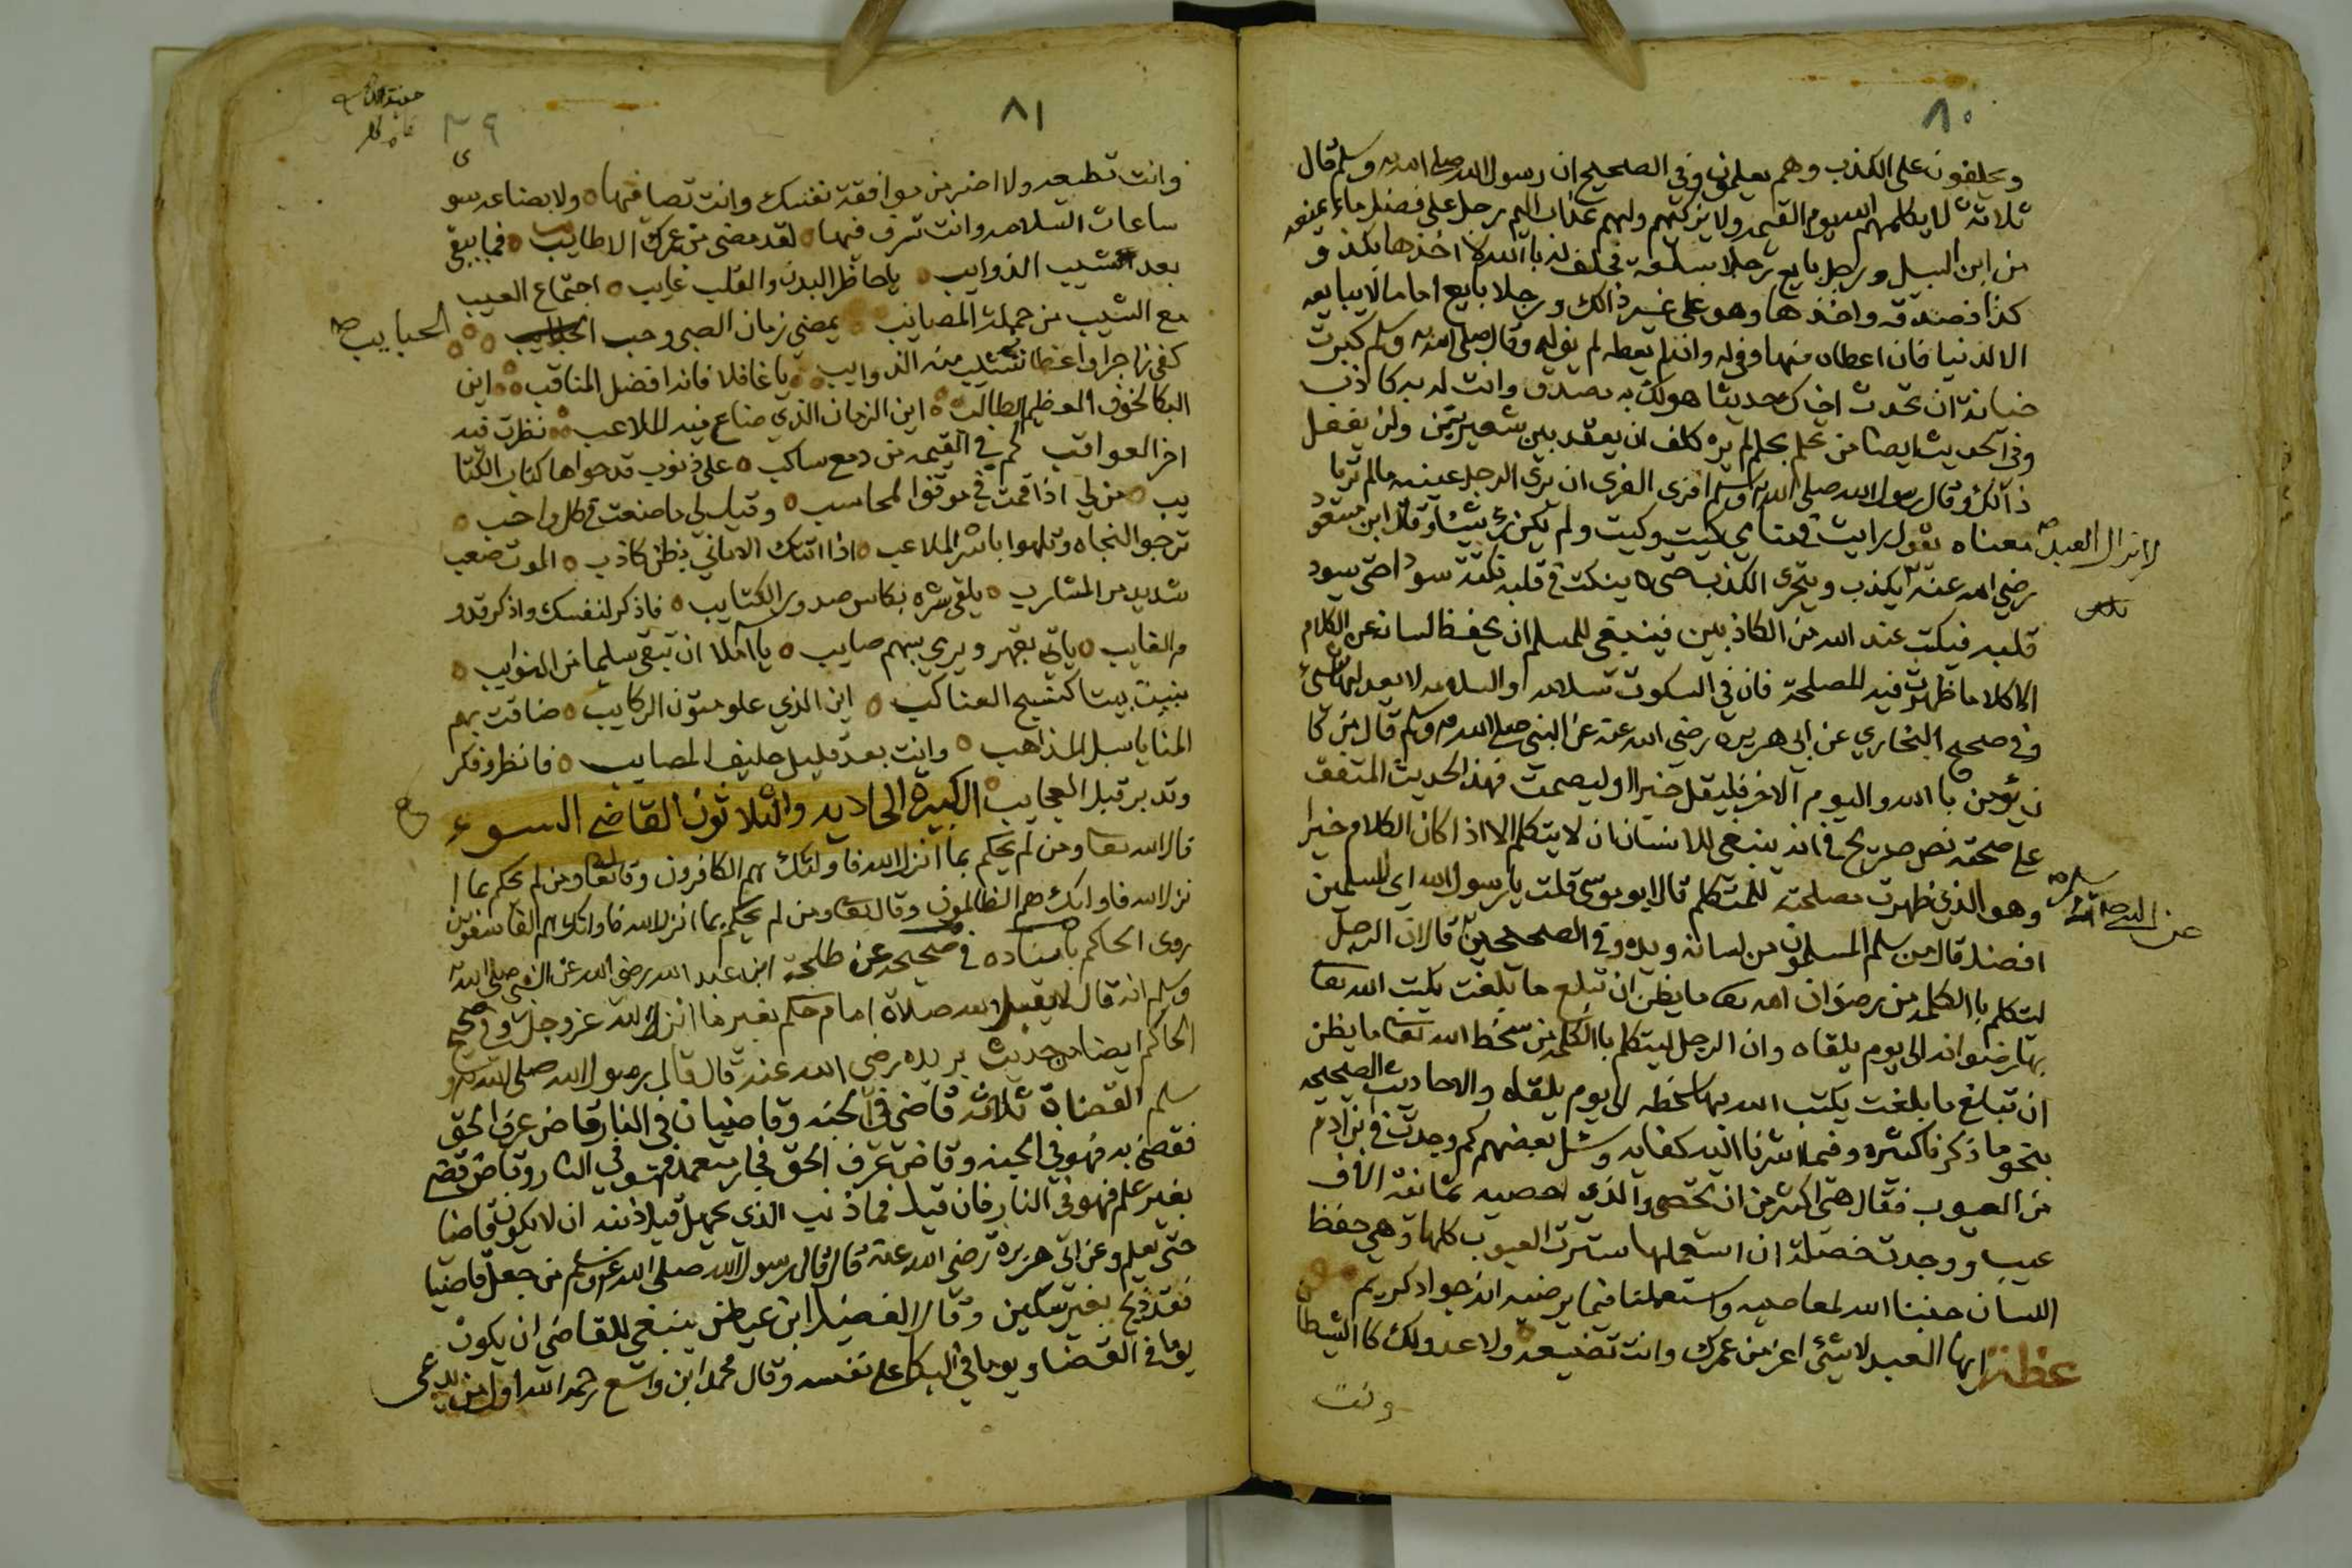 ٨٠
ويحلفون على الكذب وهم يعلمون وفي الصحيح ان رسول الله صلى الله عليه وسلم قال
ثلاثة لا يكلمهم الله يوم القيمه ولا يزكيهم ولهم عذاب اليم رجل على فضل ماء يمنعه
من ابن السبيل ورجل بايع رجلا سلعة فحلف له باالله لاخذها بكذ و
كذا فصدقه واخذها وهو على غير ذالك ورجلا بايع اماما لا يبايعه
الا لدنيا فان اعطاه منها وفى له وان لم يعطه لم يفى له وقال صلى الله عليه وسلم كبرت
خيانة ان تحدث اخاك حديثا هو لك به مصدق وانت له به كاذب
وفي الحديث ايضا من تحلم بحلم لم يره كلف ان يعقد بين شعيرتين ولن يفعل
ذالك وقال رسول الله صلى الله عليه وسلم افرى الفرى ان يرى الرجل عينيه مالم تريا
معناه يقول رايت في منامي كيت وكيت ولم يكن رى شيئا وقال ابن مسعود
لا يزال العبد صح
رضي الله عنه يكذب ويتحرى الكذب حتى ينكت في قلبه نكتة سودا حتى يسود
قلبه فيكتب عند الله من الكاذبين فينبغي للمسلم ان يحفظ لسانه عن الكلام
الا كلاما ظهرت فيه المصلحة فان في السكوت سلامه والسلامه لا يعدلها شيئ
وفي صحيح البخاري عن ابي هريره رضي الله عنه عن النبي صلى الله عليه وسلم قال من كا
ن يؤمن باالله واليوم الاخر فليقل خيرا او ليصمت فهذا الحديث المتفق
على صحته نص صريح في انه ينبغي للانسان ان لا يتكلم الا اذا كان الكلام خيرا
وهو الذي ظهرت مصلحته للمتكلم قال ابو موسى قلت يارسول الله اي المسلمين
افضل قال من سلم المسلمون من لسانه ويده وفي الصحيحين قال ان الرجل
ليتكلم باالكلمه من رضوان الله تعا ما يظن ان تبلغ ما بلغت يكتب الله تعا
بها رضوانه الى يوم يلقاه وان الرجل ليتكلم باالكلمه من سخط الله تعا ما يظن
ان تبلغ ما بلغت يكتب الله بها سخطه الى يوم يلقاه والاحاديث الصحيحه
بنحو ما ذكرنا كثيره وفيما اشرنا اليه كفايه وسئل بعضهم كم وجدت في ابن ادم
من العيوب فقال هي اكثر من ان تحصى والذي احصيه ثمانية الاف
عيب ووجدت خصلة ان استعملها سترت العيوب كلها وهي حفظ
اللسان جنبنا الله لمعاصيه واستعملنا فيما يرضيه انه جواد كريم
عظة ايها العبد لا شيئ اعز من عمرك وانت تضيعه ولا عدو لك كا الشيطا
ن
وانت
٨١
٣٩
وانت تطيعه ولا اضر من موافقة نفسك وانت تصافيها ولا بضاعه سو
ى
ساعات السلامه وانت تسرف فيها لقد مضى من عمرك الاطايب فما يبقى
بعد شيب الذوايب ياحاظر البدن والقلب غايب اجتماع العيب
مع الشيب من جملة المصايب يمضي زمان الصبى وحب
الحبايب صح
كفى زاجرا واعظا تشيب منه الذوايب ياغافلا فاته افضل المناقب اين
البكا لخوف العظيم الطالب اين الزمان الذي ضاع فيه الملاعب نظرت فيه
اخر العواقب كم في القيمه من دمع ساكب على ذنوب قد حواها كتاب الكتا
يب من لي اذا قمت في موقف المحاسب وقيل لي ما صنعت في كل واجب
ترجوا النجاه وتلهوا باشر الملاعب اذا اتتك الاماني بظن كاذب الموت صعب
شديد مر المشارب يلقى شره بكاس صدور الكتايب فاذكر لنفسك واذكر قدو
م الغايب ياتي بقهر ويرمي بسهم صايب يااملا ان تبقى سليما من النوايب
بنيت بيتا كنسيج العناكب اين الذي علو متون الركايب ضاقت بهم
المنايا سبل المذاهب وانت بعد قليل حليف المصايب فانظر وفكر
وتدبر قبل العجايب الكبيرة الحاديه والثلاثون القاضي السوء
قال الله تعا ومن لم يحكم بما انزل الله فاولئك هم الكافرون وقال تعا ومن لم يحكم بما ا
نزل الله فاولئك هم الظالمون وقال تعا ومن لم يحكم بما انزل الله فاولئك هم الفاسقون
روى الحاكم باسناده في صحيحه عن طلحة ابن عبد الله رضي الله عن النبي صلى الله عليه
وسلم انه قال لايقبل الله صلاة امام حكم بغير ما انزل الله عز وجل وفي صحيح
الحاكم ايضا من حديث بريده رضي الله عنه قال قال رسول الله صلى الله عليه و
سلم القضاة ثلاثه قاضي في الجنه وقاضيان في النار قاض عرف الحق
فقضى به فهو في الجنه وقاض عرف الحق فجار متعمد فهو في النار وقاض قضى
بغير علم فهو في النار فان قيل فما ذنب الذي يجهل قيل ذنبه ان لا يكون قاضيا
حتى يعلم وعن ابي هريرة رضي الله عنه قال قال رسول الله صلى الله عليه وسلم من جعل قاضيا
فقد ذبح بغير سكين وقال الفضيل ابن عياض ينبغي للقاضي ان يكون
يوما في القضا ويوما في البكا على نفسه وقال محمد ابن واسع رحمه الله اول من يدعى